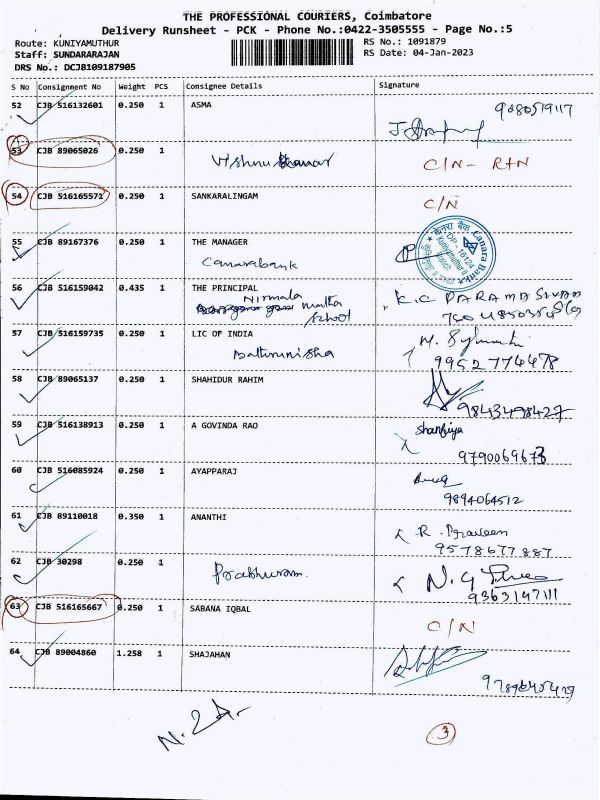 THE PROFESSIONAL COURIERS, Coimbatore
Delivery Runsheet - PCK - Phone No.:0422-3505555 - Page No.:5
Route: KUNIYAMUTHUR
RS No.: 1091879
Staff: SUNDARARAJAN
RS Date: 04-Jan-2023
DRS No.: DCJB109187905
S No Consignment No Weight PCS Consignee Details Signature
52 CJB 516132601 0.250 1 ASMA
53 CJB 89065026 0.250 1 Vishnu Kumar C/N - R+N
54 CJB 516165571 0.250 1 SANKARALINGAM C/N
55 CJB 89167376 0.250 1 THE MANAGER
Canarabank
Canara Bank
केनरा बैंक
DP - 16124
56 CJB 516159042 0.435 1 THE PRINCIPAL
Nirmala
matha
school
K.C PARAMASIVAN
57 CJB 516159735 0.250 1 LIC OF INDIA
Bathurunisha
9952774478
58 CJB 89065137 0.250 1 SHAHIDUR RAHIM
9843498427
59 CJB 516138913 0.250 1 A GOVINDA RAO
9790069673
60 CJB 516085924 0.250 1 AYAPPARAJ
9894064512
61 CJB 89110018 0.350 1 ANANTHI R. Praveen
9578677887
62 CJB 30298 0.250 1
Prabhuram.
9363147111
63 CJB 516165667 0.250 1 SABANA IQBAL
C/N
64 CJB 89004860 1.258 1 SHAJAHAN
3